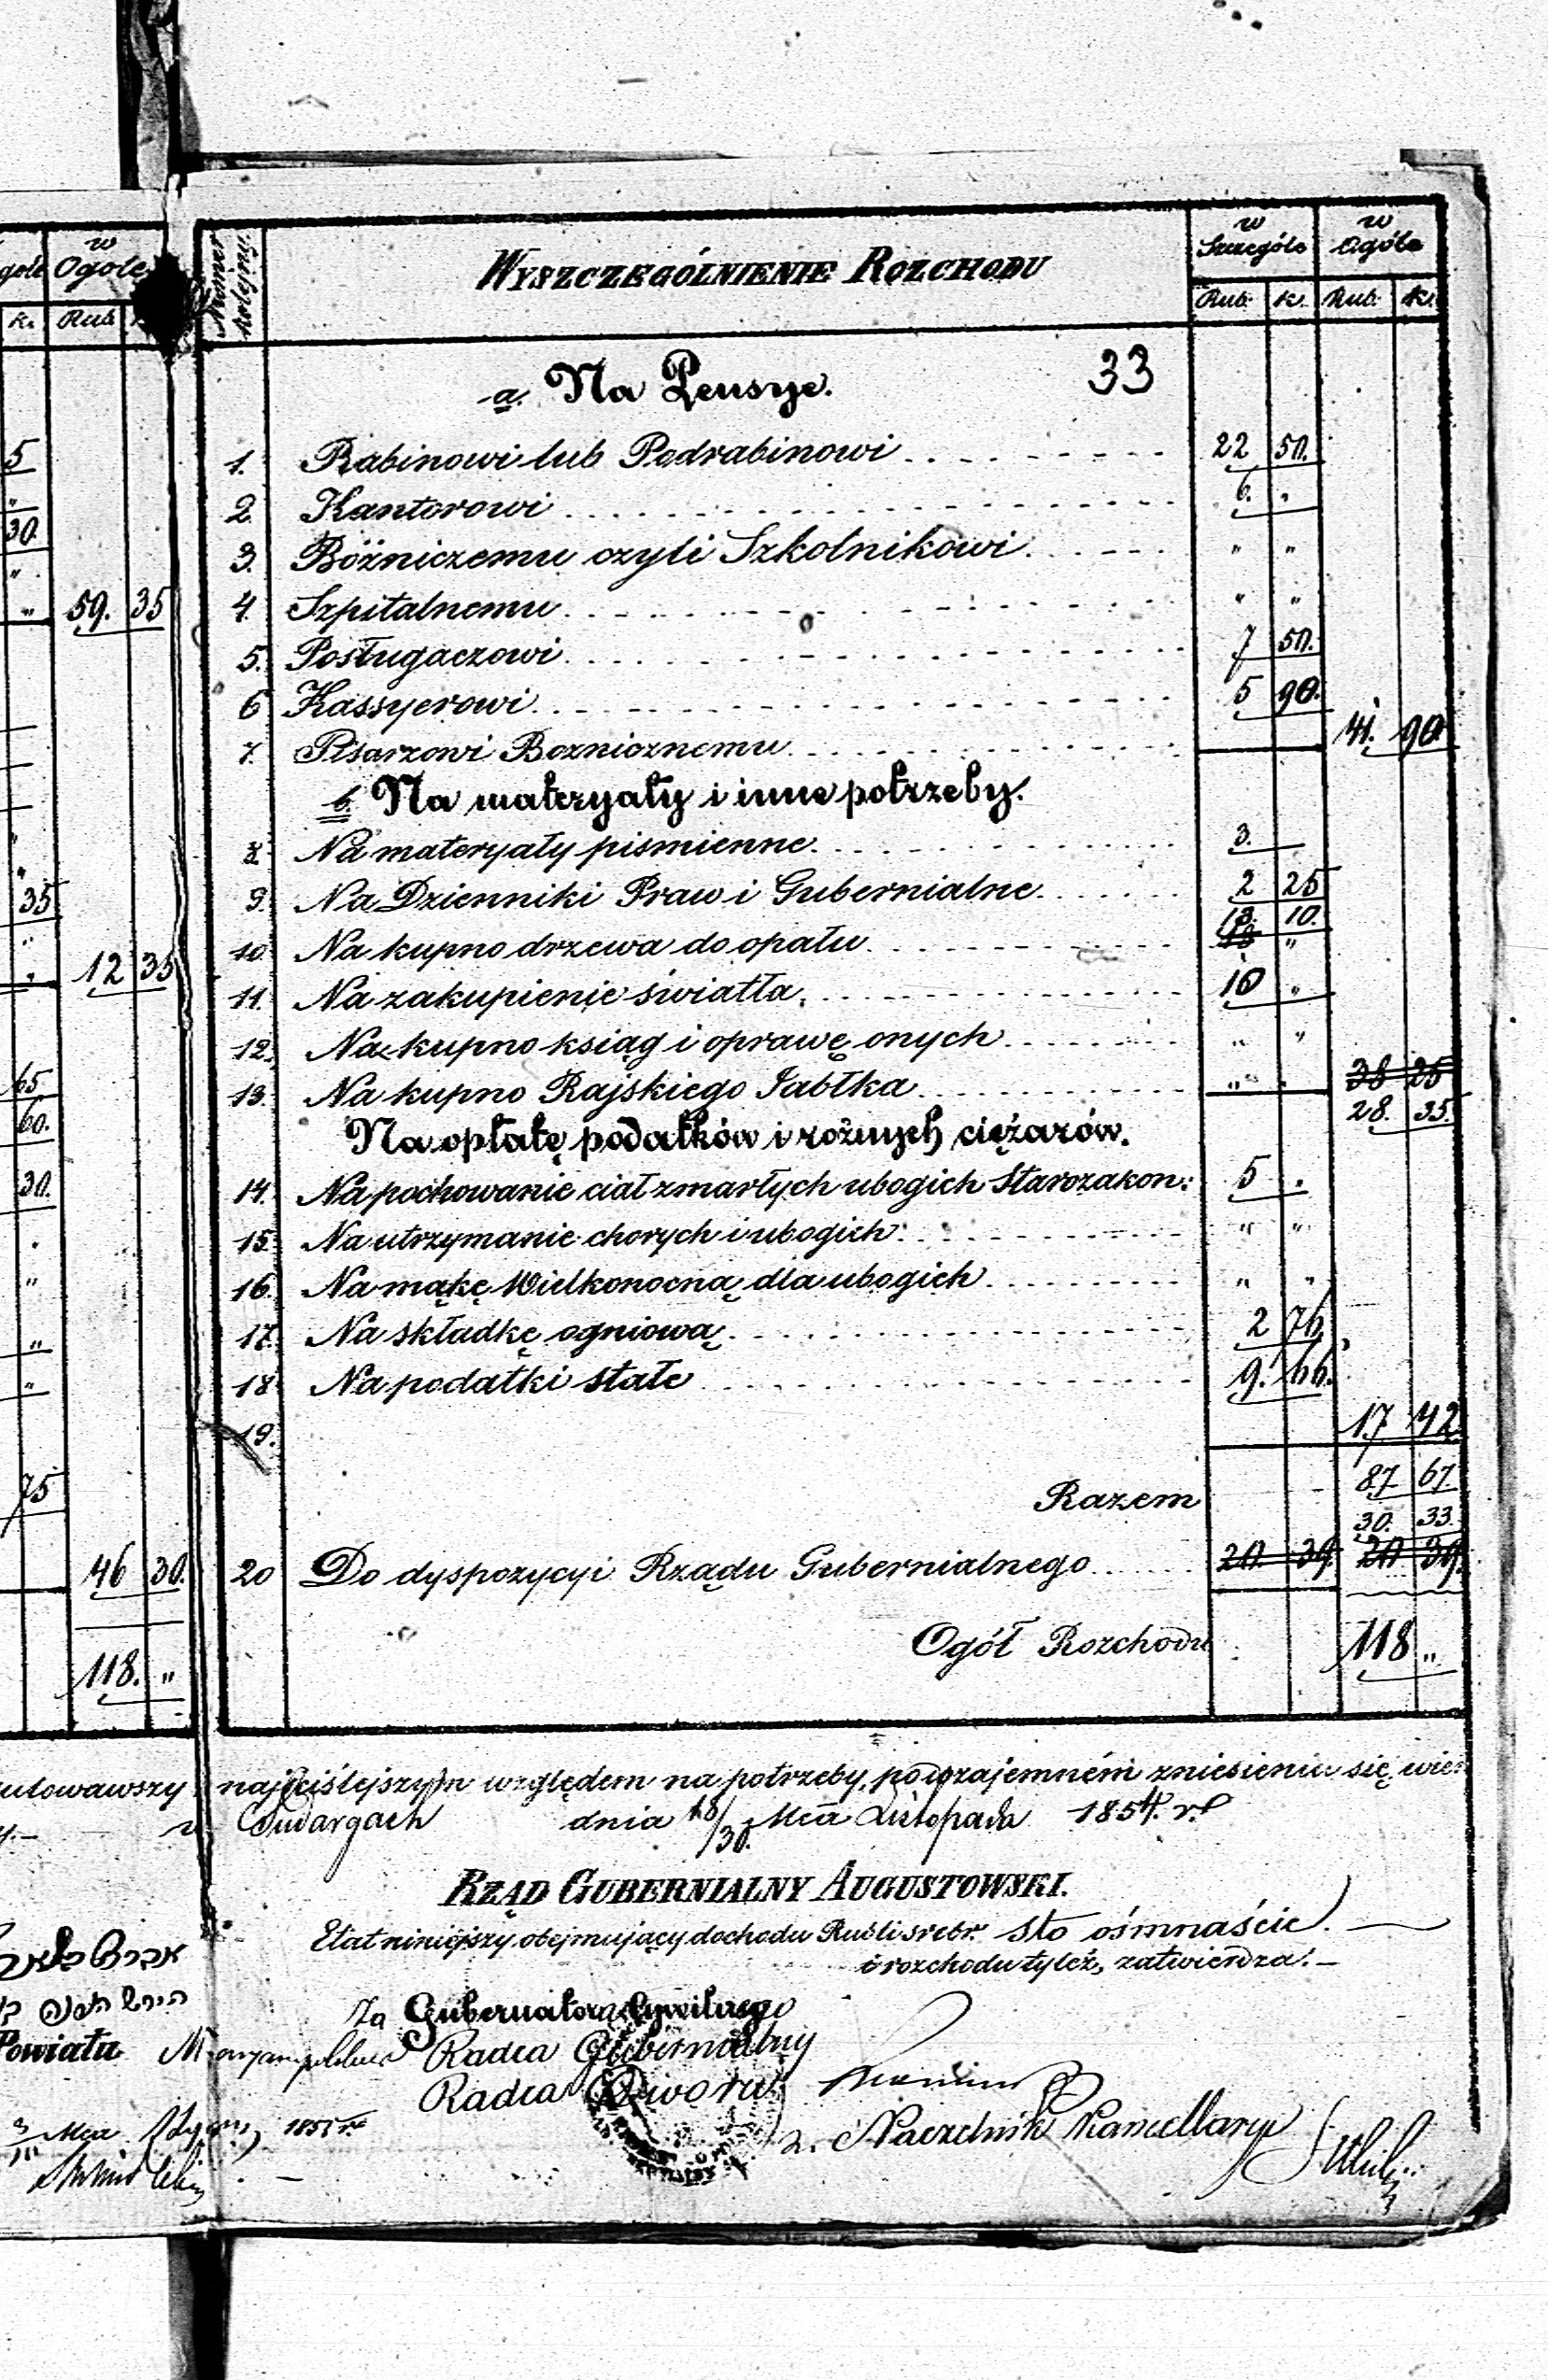 w Ogole
Rub
K.
5
"
30.
"
" 59. 35
35
"
" 12 35
65
60.
30.
"
"
"
75
46 30.
118. "
Numer kolejny.
WYSZCZEGÓLNIENIE ROZCHODU
w Szczególe
w Ogóle
Rub. K. Rub. K.
a. Na Pensye. 33
1. Rabinowi lub Podrabinowi 22 50.
2. Kantorowi 6. "
3. Bóżniczemu czyli Szkolnikowi " "
4. Szpitalnemu " "
5. Posługaczowi 7 50.
6 Kassyerowi 5 90.
7. Pisarzowi Boznicznemu 41. 90
b. Na materyały i inne potrzeby.
8. Na materyały pismienne 3.
9. Na Dzienniki Praw i Gubernialne 2 25
13. 10.
10. Na kupno drzewa do opału 18 "
11. Na zakupienie światła 10 "
12. Na kupno ksiąg i oprawę onych " "
13. Na kupno Rajskiego Jabłka " 38 25
28. 35.
Na opłatę podatków i rożnych ciężarów.
14. Na pochowanie ciał zmarłych ubogich Starozakon: 5 .
15. Na utrzymanie chorych i ubogich " "
16. Na mąkę Wielkonocną dla ubogich " "
17. Na składkę ogniową 2 76
18 Na podatki stałe 9. 66.
19. 17 42
Razem 87 67.
30. 33.
20 Do dyspozycyi Rządu Gubernialnego 20. 39. 20 39.
Ogół Rozchodu 118 "
najściślejszym względem na potrzeby, po wzajemném zniesieniu się
w Sudargach dnia 18/30. Mca Listopada 1854. r.
RZĄD GUBERNIALNY AUGUSTOWSKI.
Etat niniejszy obejmujący dochodu Rubli srebr. sto ośmnaście
i rozchodu tyleż, zatwierdza.
Za Gubernatora Cywilnego
Powiatu
Radca Gubernialny
Radca Dworu
Mca
z. Naczelnik Kancellaryi